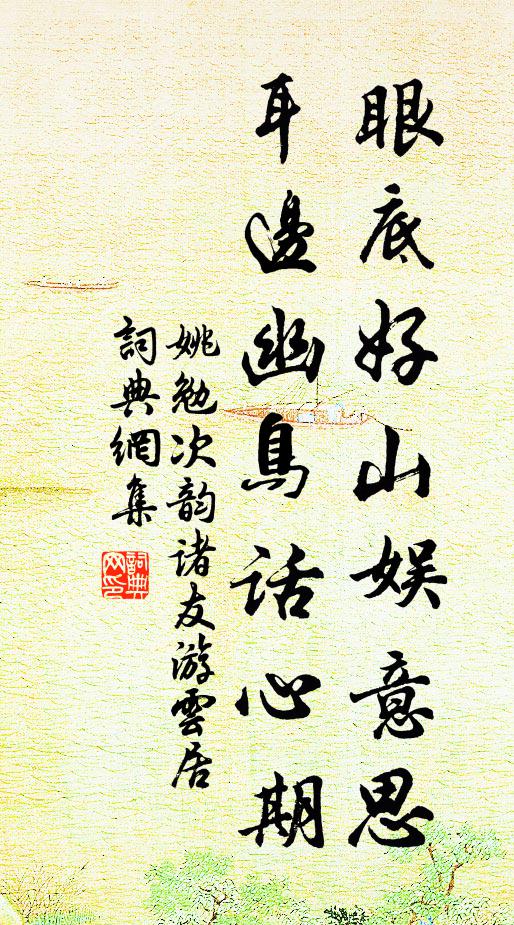 眼底好山娱意思
耳邊幽鳥話心期
姚勉次韵诸友游雲居
詞典網集
詞典网印